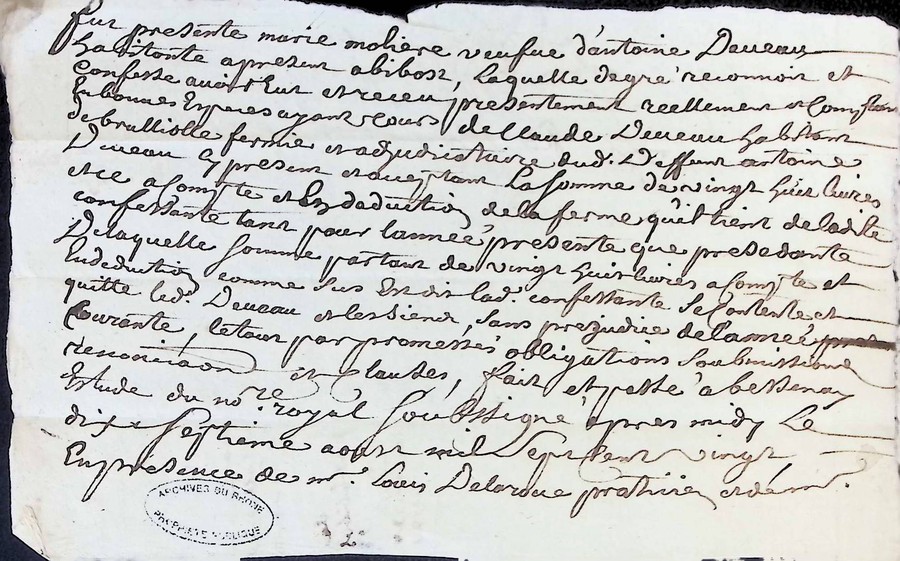 fut presente marie moliere veufue d'antoine Deueau
habitante apresent a bibost, laquelle degré reconnoit et
confesse auoir Eut et receu presentement reellement et Comptan
En bonnes Especes ayant Cours de Claude Deueau habitant
de brulliolle fermie et adjudictaire dud. Deffunt antoine
Deueau Cy present et aceptant la somme de vingt huit liures
et ce a Compte et En daduction de la ferme qu'il tient de ladite
confessante tant pour l'année presente que presedante
De laquelle somme partant de vingt huit liures a Compte et
En deduction comme sus Est dit lad. confessante se Contente et
quitte led. Deueau et les siens, sans prejudice de l'année
Courante, le tout par promesses obligations soubmissions
renonciaon et Clauses, fait et passé a bessenay
Estude du no.re royal soubssigné apres midy Le
dix septieme aoust mil sept Cent vingt
En presence de mr. Louis Delaroue praticien et de mr.
ARCHIVES DU RHONE
PROPRIÉTÉ PUBLIQUE